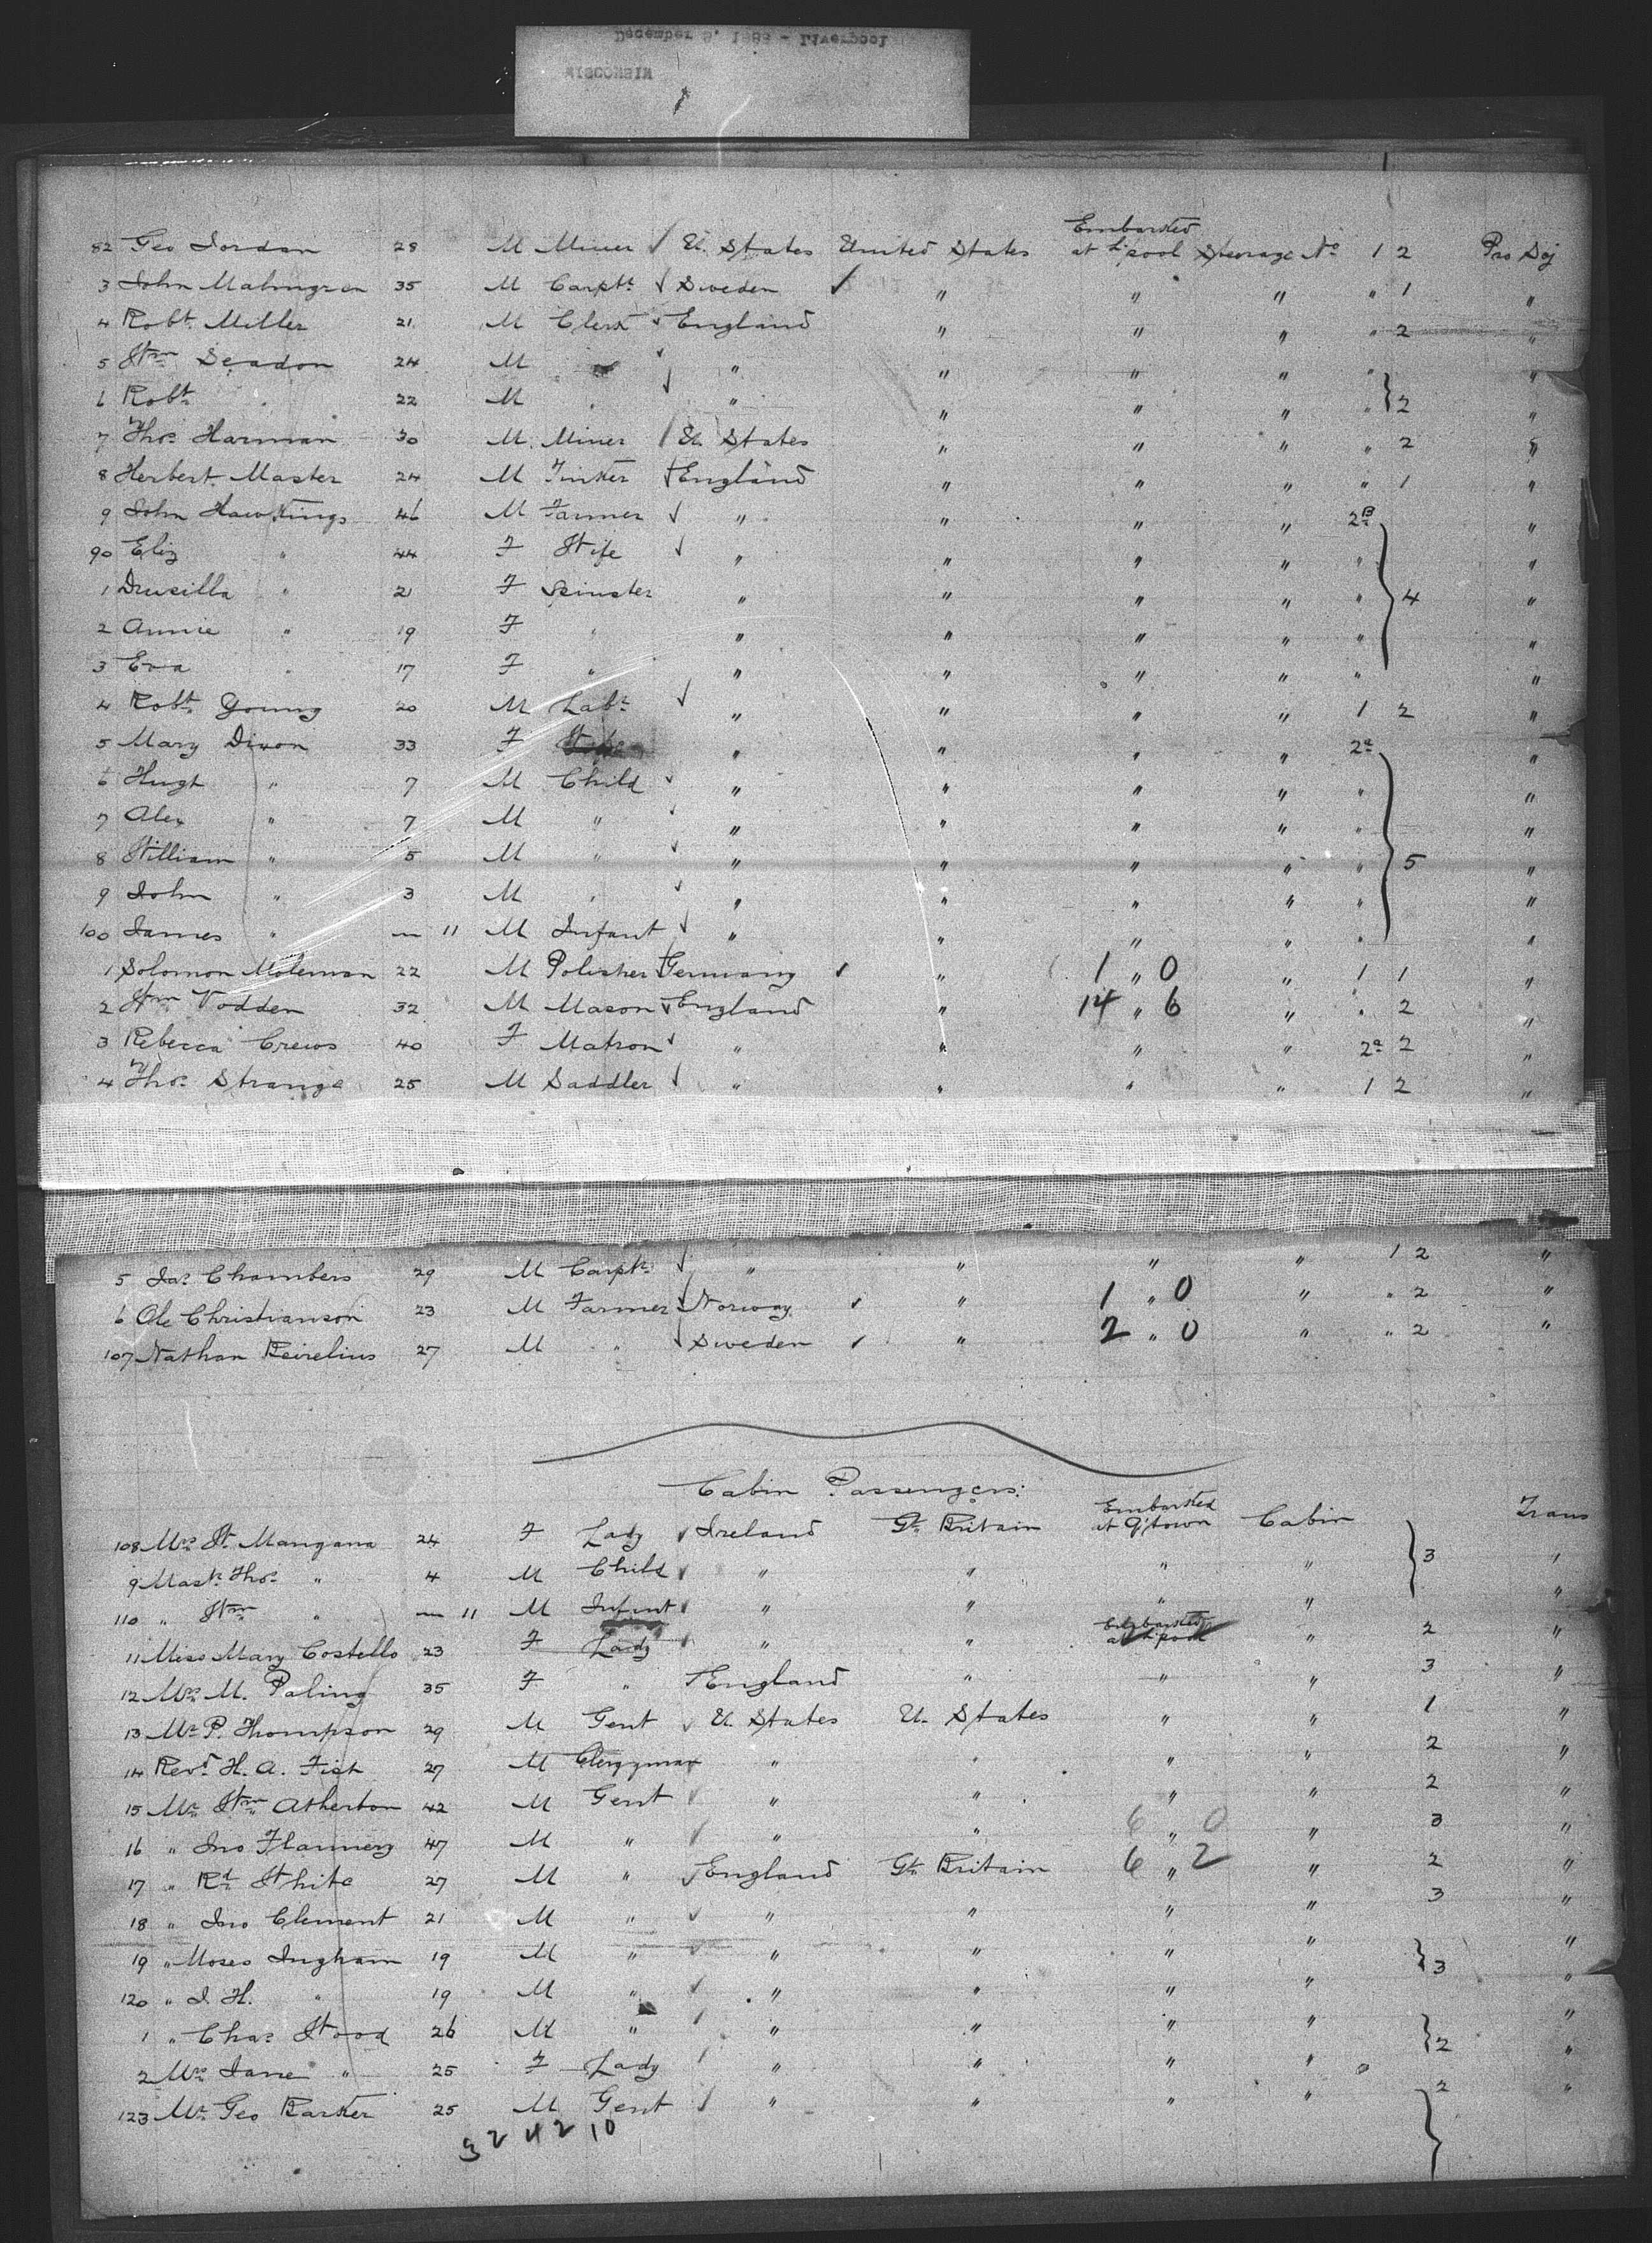 December 9, 1893 - Liverpool
WISCONSIN
82 Geo Jordan 28 M Miner U. States United States Embarked at L'pool Steerage No 1 2 Pro Soj
3 John Malmgren 35 M Carptr Sweden " " " " 1 "
4 Robt Miller 21 M Clerk England " " " " 2 "
5 Wm Seadon 24 M " " " " " " "
6 Robt " 22 M " " " " " " 2 "
7 Thos Harman 30 M Miner U. States " " " " 2 "
8 Herbert Master 24 M Tinker England " " " " 1 "
9 John Hawkings 46 M Farmer " " " " 2B "
90 Eliz " 44 F Wife " " " " " "
1 Drusilla " 21 F Spinster " " " " " 4 "
2 Annie " 19 F " " " " " " "
3 Eva " 17 F " " " " " " "
4 Robt Young 20 M Labr " " " " 1 2 "
5 Mary Dixon 33 F Wife " " " " 2a "
6 Hugh " 7 M Child " " " " " "
7 Alex " 7 M " " " " " " "
8 William " 5 M " " " " " " 5 "
9 John " 3 M " " " " " " "
100 James " 11 M Infant " " " " " "
1 Solomon Moleman 22 M Polisher Germany " 1 " 0 " 1 1 "
2 Wm Vodden 32 M Mason England " 14 " 6 " " 2 "
3 Rebecca Crews 40 F Matron " " " " 2a 2 "
4 Thos Strange 25 M Saddler " " " " 1 2 "
5 Jas Chambers 29 M Carptr " " " " 1 2 "
6 Ole Christianson 23 M Farmer Norway " 1 " 0 " " 2 "
107 Nathan Reirelius 27 M " Sweden " 2 " 0 " " 2 "
Cabin Passengers:
108 Mrs W. Mangana 24 F Lady Ireland Gt Britain Embarked at Q'town Cabin Trans
9 Mastr Thos " 4 M Child " " " " 3 "
110 " Wm " 11 M Infant " " " " "
11 Miss Mary Costello 23 F Lady " " Embarked at L'pool " 2 "
12 Mrs M. Paling 35 F " England " " " 3 "
13 Mr P. Thompson 29 M Gent U. States U. States " " 1 "
14 Revd H. A. Fish 27 M Clergyman " " " " 2 "
15 Mr Wm Atherton 42 M Gent " " " " 2 "
16 " Jno Flannery 47 M " " " 6 " 0 " 3 "
17 " Rd White 27 M " England Gt Britain 6 " 2 " 2 "
18 " Jno Clement 21 M " " " " " 3 "
19 " Moses Ingham 19 M " " " " " 3 "
120 " J. H. " 19 M " " " " " "
1 " Chas Wood 26 M " " " " " 2 "
2 Mrs Jane " 25 F Lady " " " " "
123 Mr Geo Barker 25 M Gent " " " " 2 "
32 42 10